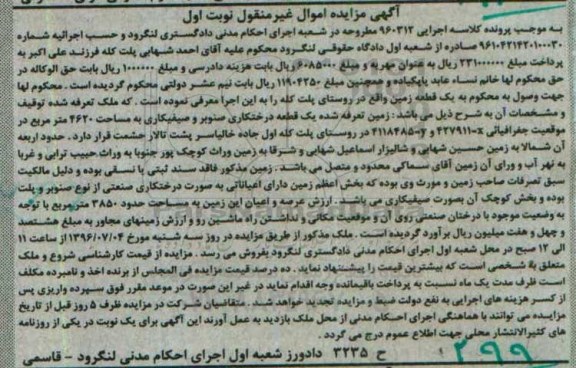 آگهی مزایده اموال غیرمنقول نوبت اول
به موجب پرونده کلاسه اجرایی ۹۶۰۳۱۲ مطروحه در شعبه اجرای احکام مدنی دادگستری لنگرود و حسب اجرائیه شماره
۹۶۱۰۴۲۱۴۲۰۱۰۰۰۳۰ صادره از شعبه اول دادگاه حقوقی لنگرود محکوم علیه آقای احمد شهابی پلت کله فرزند علی اکبر به
پرداخت مبلغ ۲۳۱۰۰۰۰۰۰ ریال به عنوان مهریه و مبلغ ۶۰۸۵۰۰۰ ریال بابت هزینه دادرسی و مبلغ ۱۰۰۰۰۰۰ ریال بابت حق الوکاله در
حق محکوم لها خانم نساء عابد پاپکیاده و همچنین مبلغ ۱۱۹۰۴۲۵۰ ریال بابت نیم عشر دولتی محکوم گردیده است. محکوم لها
جهت وصول به محکوم به یک قطعه زمین واقع در روستای پلت کله را به این اجرا معرفی نموده است. که ملک تعرفه شده توقیف
و مشخصات آن به شرح ذیل می باشد: زمین تعرفه شده یک قطعه درختکاری صنوبر و صیفیکاری به مساحت ۴۶۲۰ متر مربع در
موقعیت جغرافیائی x-۴۲۷۹۱۱ و y-۴۱۱۸۴۸۵ در روستای پلت کله اول جاده خالیاسر پشت تالار حشمت قرار دارد. حدود اربعه
آن شمالا به زمین حسین شهابی و شالیزار اسماعیل شهابی و شرقا به زمین وراث کوچک پور جنوبا به وراث حبیب ترابی و غربا
به نهر آب و ورای آن زمین آقای سماکی محدود و متصل می باشد. زمین مذکور فاقد سند ثبتی با نسقی بوده و دلیل مالکیت
سبق تصرفات صاحب زمین و مورث وی بوده که بخش اعظم زمین دارای اعیاناتی به صورت درختکاری صنعتی از نوع صنوبر و پلت
بوده و بخش کوچک آن بصورت صیفیکاری می باشند. ارزش عرصه و اعیان این زمین به مساحت حدود ۳۸۵۰ مترمربع با توجه
به وضعیت موجود با درختان صنعتی روی آن و موقعیت مکانی و نداشتن راه ماشین رو و ارزش زمینهای مجاور به مبلغ هشتصد
و چهل و هفت میلیون ریال برآورد گردیده است. ملک مذکور از طریق مزایده در روز سه شنبه مورخ ۱۳۹۶/۰۷/۰۴ از ساعت ۱۱
الی ۱۲ صبح در محل شعبه اول اجرای احکام مدنی دادگستری لنگرود بفروش می رسد. مزایده از قیمت کارشناسی شروع و ملک
متعلق به شخصی است که بیشترین قیمت را پیشنهاد نماید. ده درصد قیمت مزایده فی المجلس از برنده اخذ و نامبرده مکلف
است ظرف مدت یک ماه نسبت به پرداخت باقیمانده وجه اقدام نماید در غیر این صورت در موعد مقرر فوق سپرده واریزی پس
از کسر هزینه های اجرایی به نفع دولت ضبط و مزایده تجدید خواهد شد. متقاضیان شرکت در مزایده ظرف ۵ روز قبل از تاریخ
مزایده می توانند با هماهنگی اجرای احکام مدنی از محل ملک بازدید به عمل آورند این آگهی برای یک نوبت در یکی از روزنامه
های کثیرالانتشار محلی جهت اطلاع عموم درج می گردد.
ح ۳۲۳۵ دادورز شعبه اول اجرای احکام مدنی لنگرود - قاسمی
۲۹۹